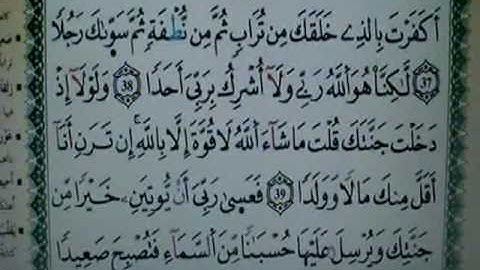 أَكَفَرْتَ بِالذِے خَلَقَكَ مِن تُرَابٍ ثُمَّ مِن نُّطْفَةٍ ثُمَّ سَوَّىٰكَ رَجُلًا
37 لَّٰكِنَّا هُوَ اَللَّهُ رَبِّے وَلَآ أُشْرِكُ بِرَبِّيَ أَحَدًا 38 وَلَوْلَآ إِذْ
دَخَلْتَ جَنَّتَكَ قُلْتَ مَا شَآءَ اَللَّهُ لَا قُوَّةَ إِلَّا بِاللَّهِ إِن تَرَنِ أَنَآ
أَقَلَّ مِنكَ مَالًا وَوَلَدًا 39 فَعَسَىٰ رَبِّيَ أَنْ يُّوتِيَنِ خَيْرًا مِّن
جَنَّتِكَ وَيُرْسِلَ عَلَيْهَا حُسْبَانًا مِّنَ اَلسَّمَآءِ فَتُصْبِحَ صَعِيدًا